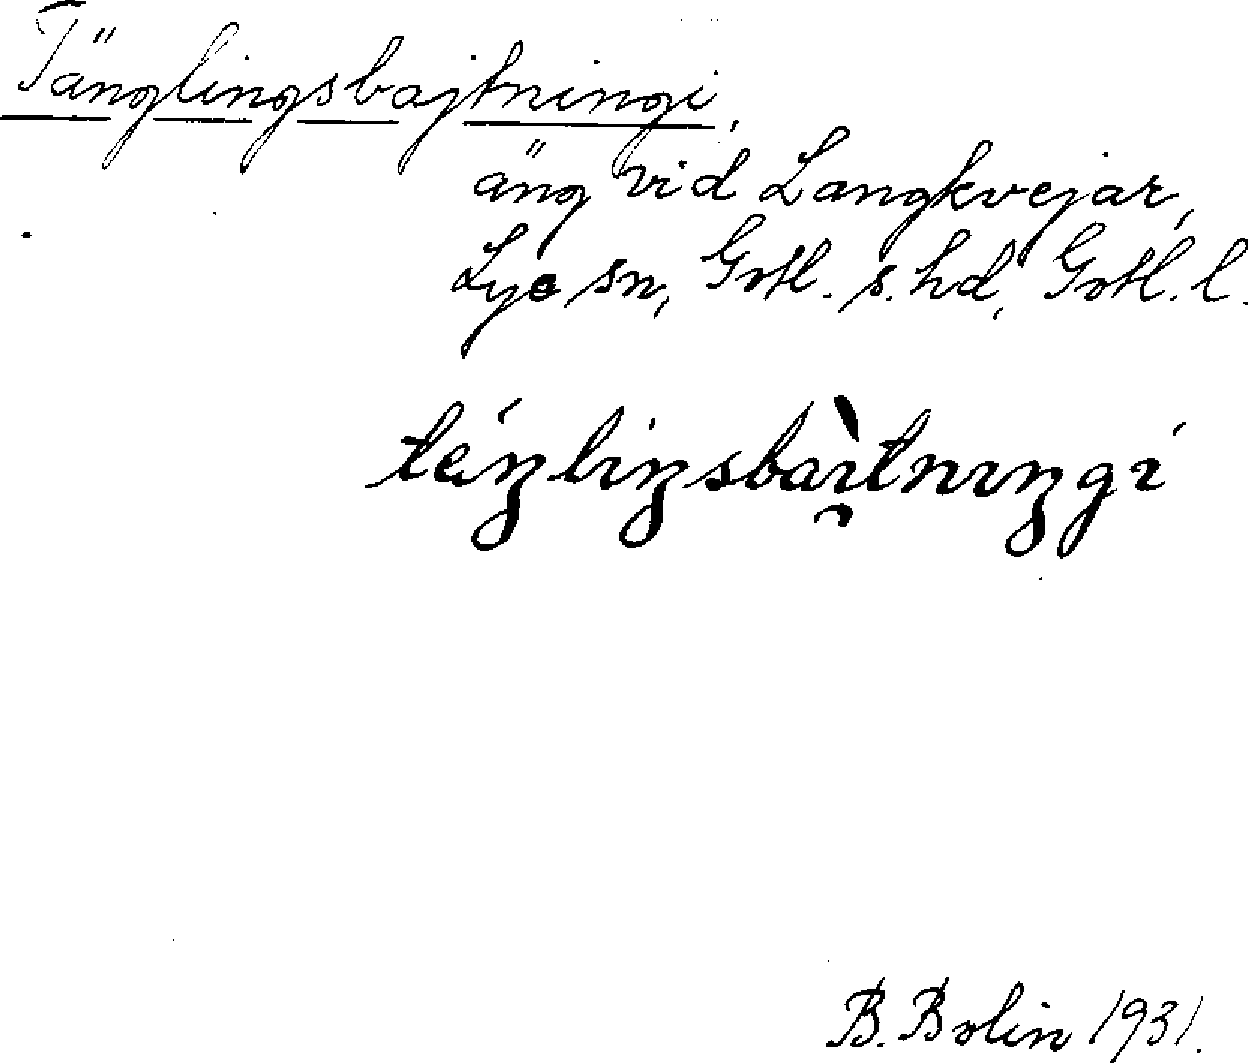 Tänglingsbajtningi,
äng vid Langkvejar,
Lye sn, Gotl. s. hd, Gotl. l.
täŋliŋsbai̯tniŋgi
B. Bolin 1931.